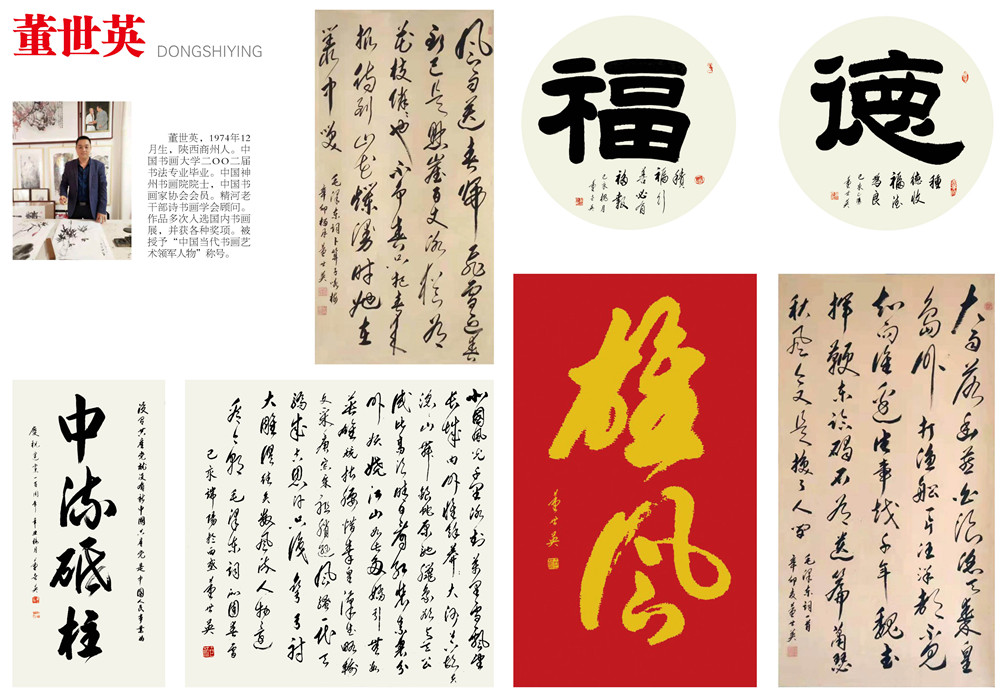 董世英 DONGSHIYING
董世英，1974年12
月生，陕西商州人。中
国书画大学二〇〇二届
书法专业毕业。中国神
州书画院院士，中国书
画家协会会员。精河老
干部诗书画学会顾问。
作品多次入选国内书画
展，并获各种奖项。被
授予“中国当代书画艺
术领军人物”称号。
风雨送春归飞雪迎春
到已是悬崖百丈冰犹有
花枝俏俏也不争春只把春来
报待到山花烂漫时她在
丛中笑
毛泽东词卜算子咏梅
董世英
福
積
福引
善必有
福報
董世英
德
種
德收
福
為良
董世英
没有共产党就没有新中国共产党是中国人民事业的
中流砥柱
董世英
北国风光千里冰封万里雪飘望
长城内外惟余莽莽大河上下顿失
滔滔山舞银蛇原驰蜡象欲与天公
试比高须晴日看红装素裹分
外妖娆江山如此多娇引无数
英雄竞折腰惜秦皇汉武略输
文采唐宗宋祖稍逊风骚一代天
骄成吉思汗只识弯弓射
大雕俱往矣数风流人物还
看今朝 毛泽东词沁园春雪
己亥端阳於西安董世英
雄风
董世英
大雨落幽燕白浪滔天秦皇
岛外打渔船一片汪洋都不见
知向谁边往事越千年魏武
挥鞭东临碣石有遗篇萧瑟
秋风今又是换了人间
毛泽东词一首
辛卯夏董世英